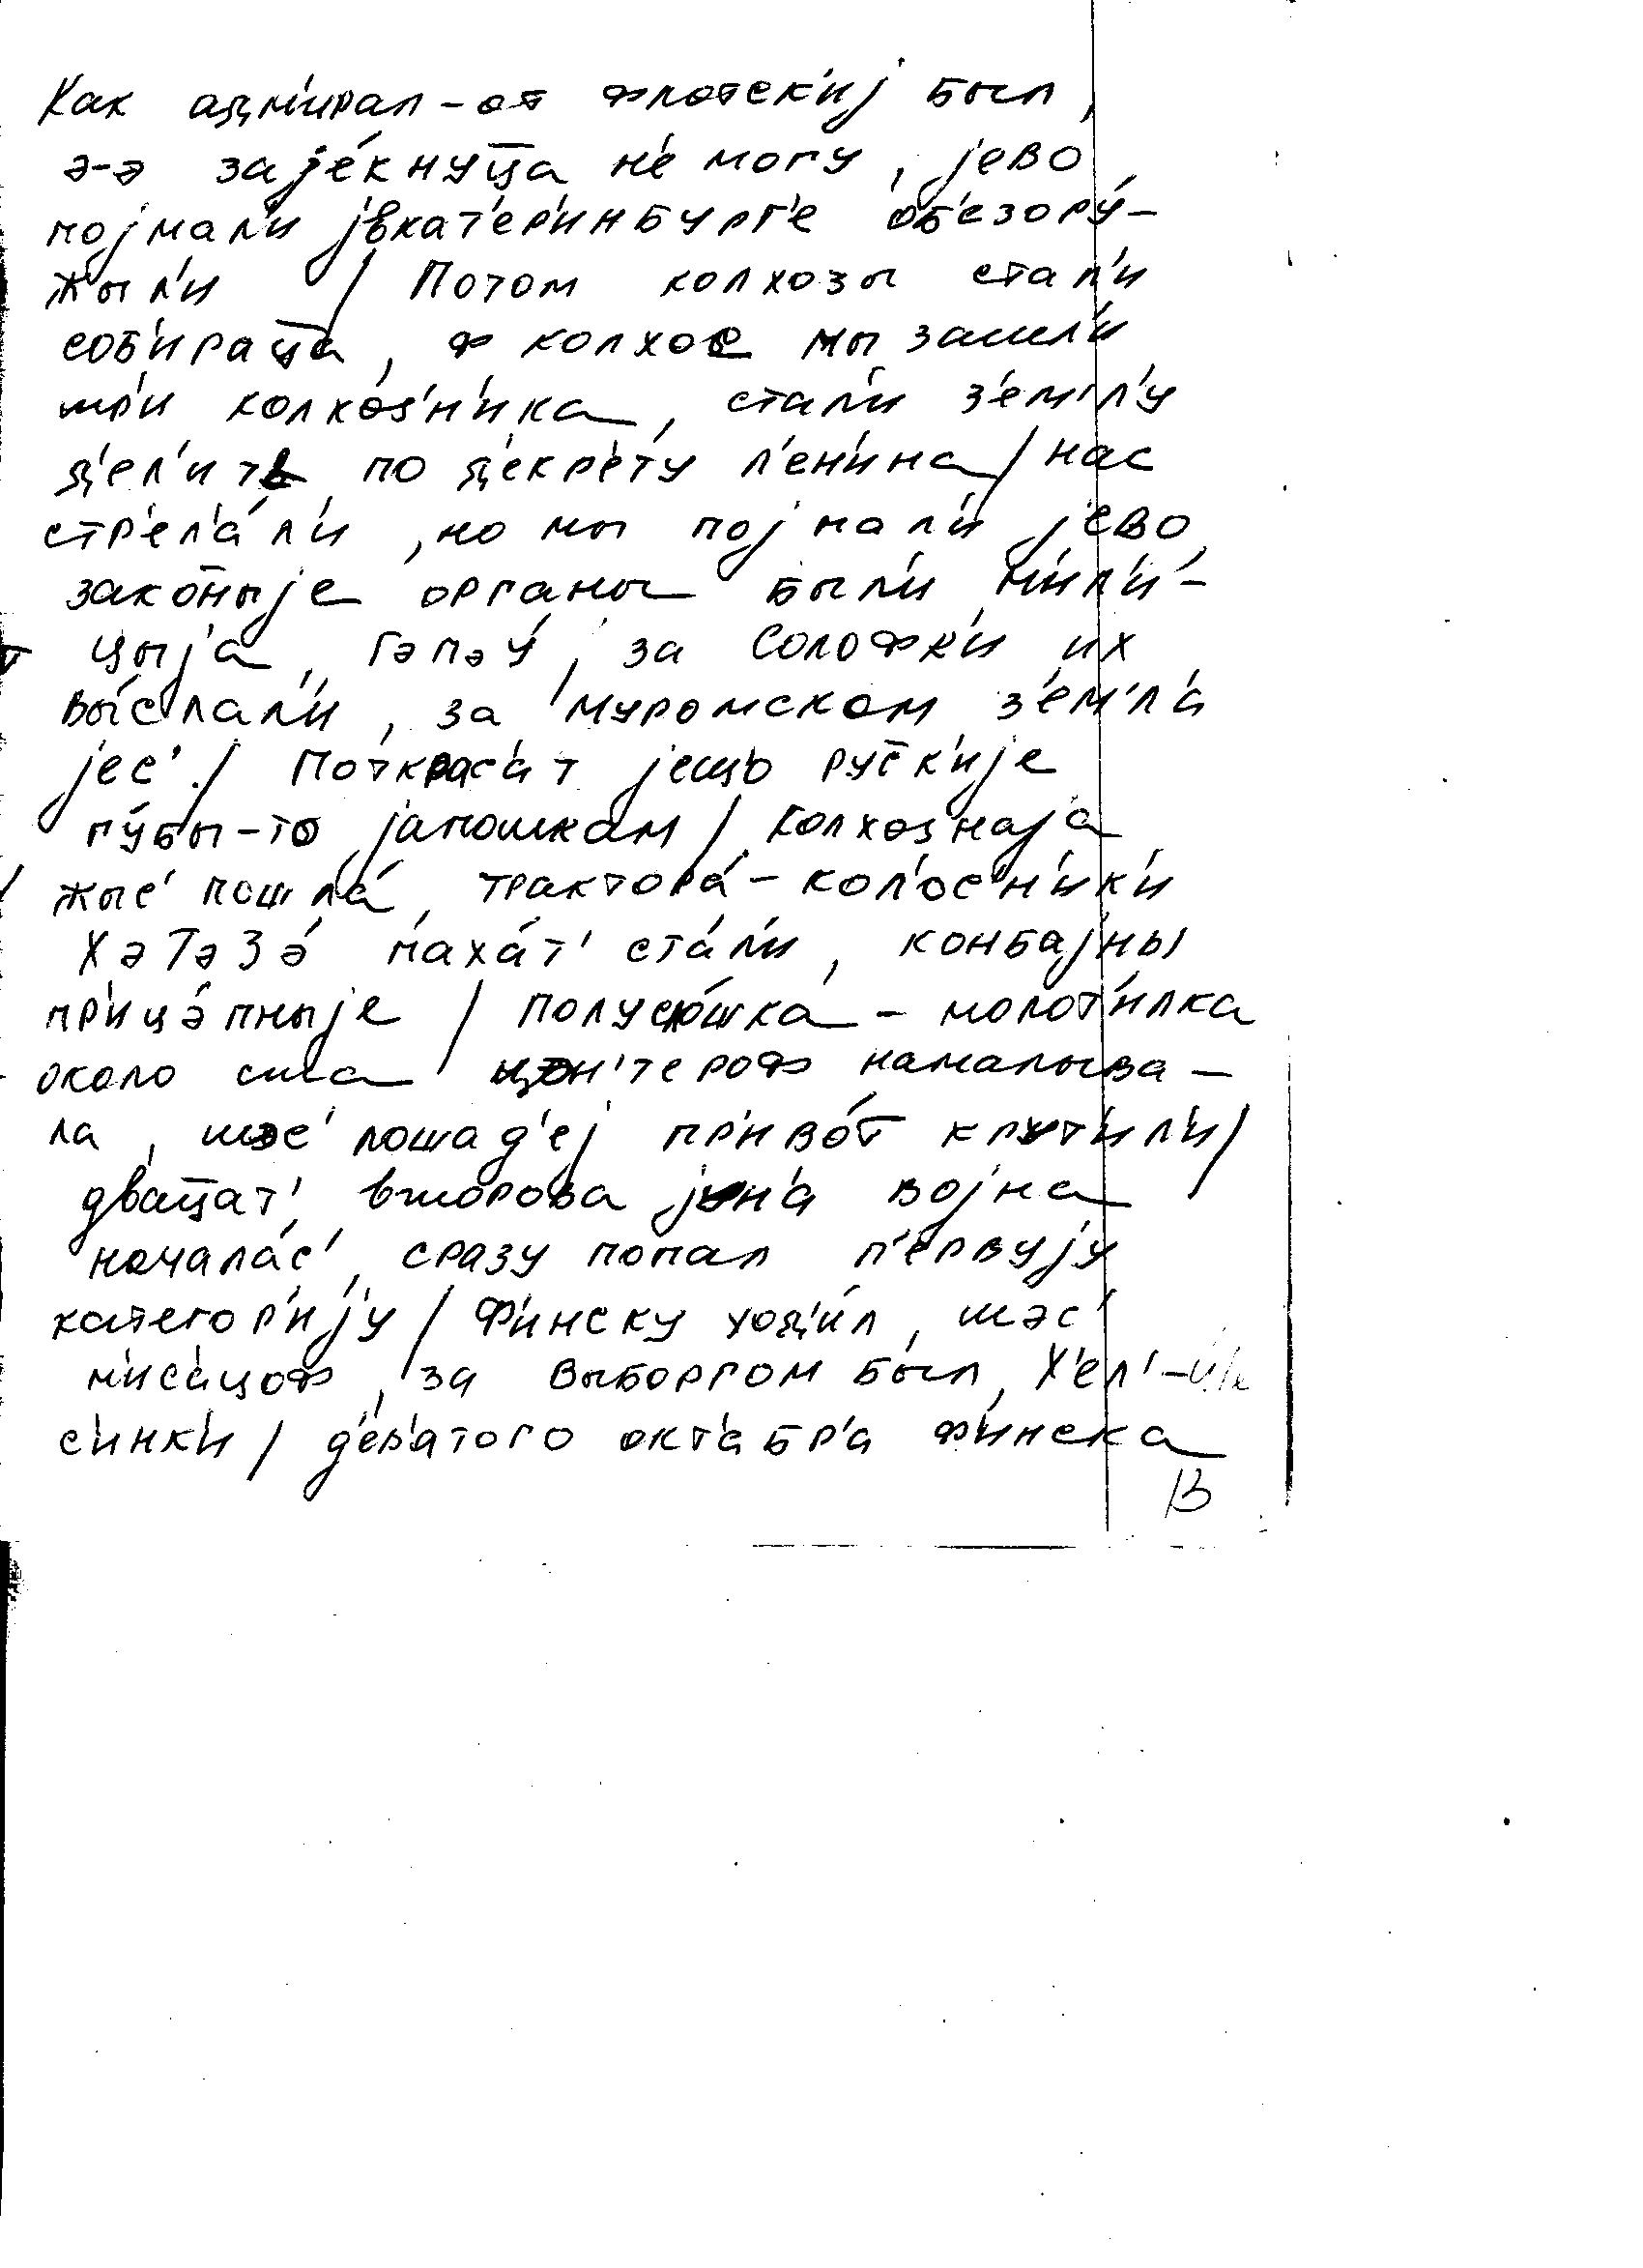 Как адм'ирал-от флотск'иј был,
э-э зајéкнуц̅а н'е могу, јево
појмал'и јвкат'ер'инбург'е об'езорý-
жыл'и / Потом колхозы стал'и
соб'ирац̅а, ф колхос мы зашл'и
тр'и колхоз'н'ика, стал'и з'емл'у
д'ел'ить по д'екр'ету л'ен'ина / нас
стр'ел'áл'и, но мы појмал'и јево,
закон̅ыје органы был'и м'ил'и-
цыја, гэпэý, за Солофк'и их
вы́слал'и, за муромском з'емл'а
јес' / Поткрас'ат јещо рус̅к'ије
гýбы-то јапошкам / колхознаја
жыс' пошлá, трактора́-кол'ос'н'ик'и
ХэТэЗэ́ пахáт' стáл'и, конбајны
пр'ицэ́пныје / полусл́ошка - молот'илка
около ста цэн'тероф намалыва-
ла, шэс' лошад'еј пр'ивóт̅ крут'ил'и /
двац̅ат' второва јун'а војна
началáс', сразу попал п'ервују
катего́р'ију / Ф'инску ход'ил, шэс'
м'ис'ацоф, за Выборгом был, Х'ел'-
с'инк'и / д'ев'атого окт'абр'а ф'инска